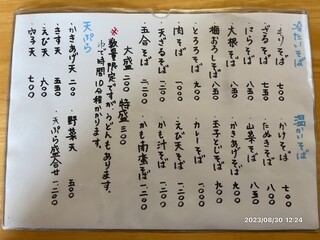 冷たいそば
・もりそば 七〇〇
・ざるそば 七五〇
・にらそば 八五〇
・大根そば 八五〇
・梅おろしそば 九〇〇
・とろろそば 九〇〇
・肉そば 一〇〇〇
・天ざるそば 一二〇〇
・五合そば 二二〇〇
大盛 二〇〇 特盛 三〇〇
※数量限定ですが、うどんもあります。
ゆで時間10分程かかります。
天ぷら
・かきあげ天 二〇〇
・きす天 五五〇
・えび天 六〇〇
・穴子天 七〇〇
温かいそば
・かけそば 七〇〇
・たぬきそば 七五〇
・山菜そば 八五〇
・かきあげそば 九〇〇
・玉子とじそば 九〇〇
・カレーそば 一〇〇〇
・えび天そば
・かも汁そば 一二〇〇
・かも南蛮そば 一二〇〇
・野菜天 五〇〇
・天ぷら盛合せ 一二〇〇
2023/08/30 12:24